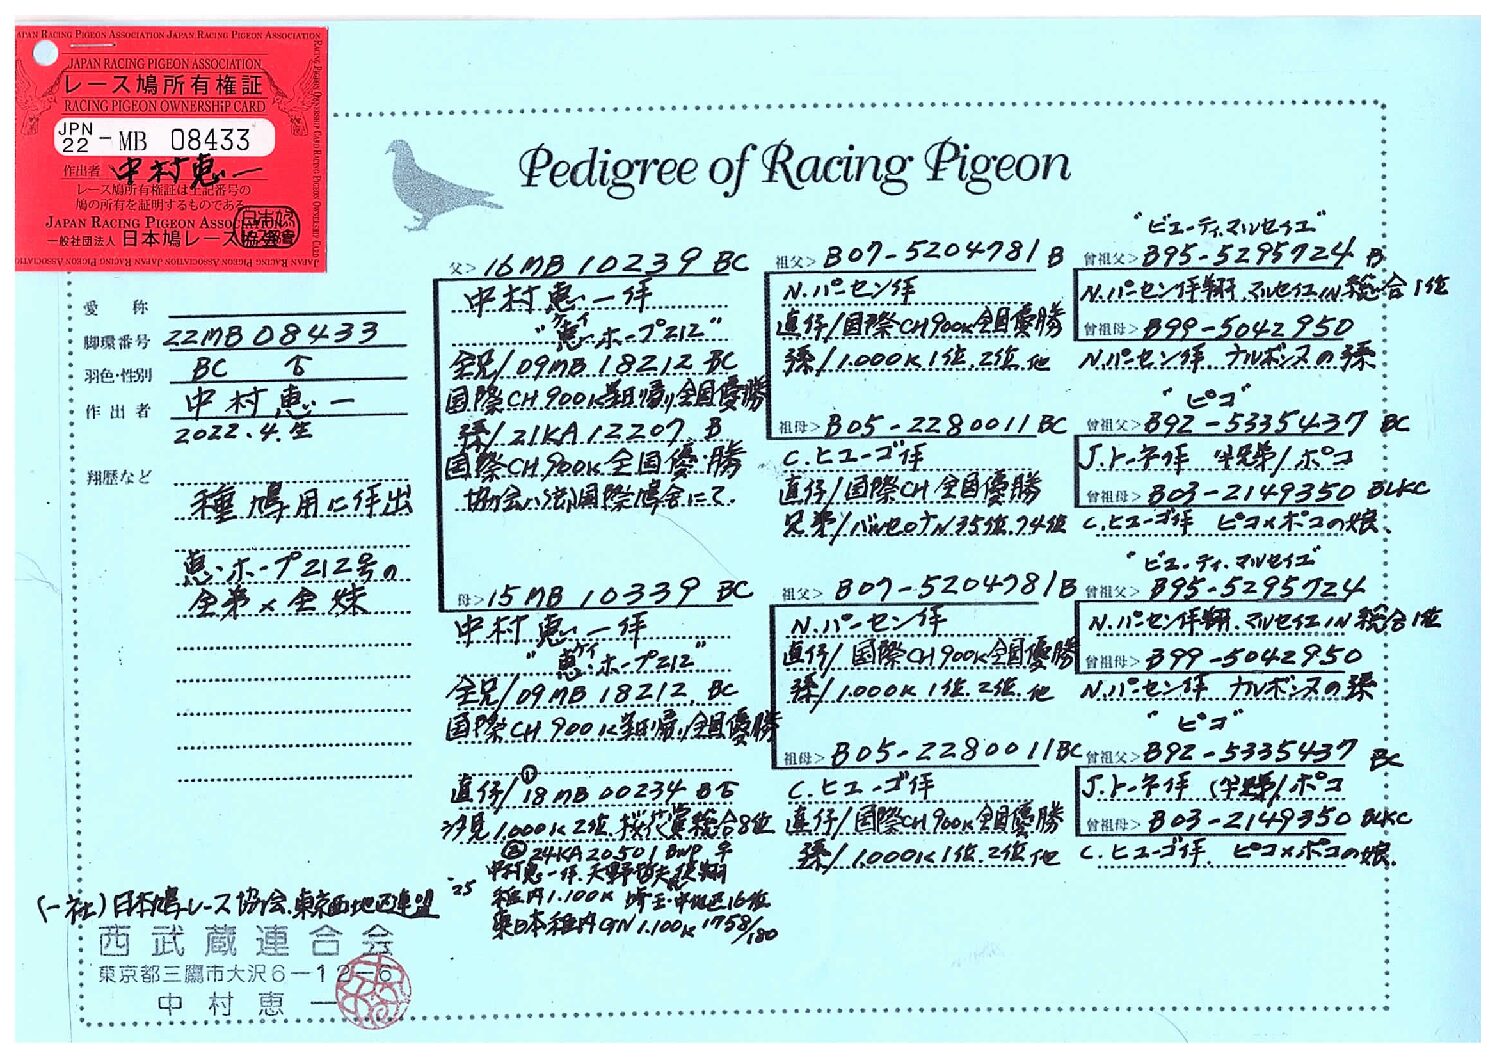 JAPAN RACING PIGEON ASSOCIATION
レース鳩所有権証
RACING PIGEON OWNERSHIP CARD
JPN 22 -MB 08433
作出者 中村恵一
レース鳩所有権証は上記番号の
鳩の所有を証明するものである
JAPAN RACING PIGEON ASSOCIATION
一般社団法人 日本鳩レース協会
Pedigree of Racing Pigeon
愛称
脚環番号 22MB08433
羽色・性別 BC ♀
作出者 中村恵一
2022.4.生
翔歴など
種鳩用に作出
恵・ホープ212号の
全弟×全妹
父> 16MB10239 BC
中村恵一作
"恵・ホープ212"
ケイ
全兄/09MB18212 BC
国際CH900K 翌日帰り全国優勝
孫/21KA12207 B
国際CH900K全国優勝
国際鳩舎にて.
母> 15MB10339 BC
中村恵一作
ケイ
"恵・ホープ212"
全兄/09MB18212. BC
国際CH900K翌日帰り全国優勝
直仔/①18MB00234 B♀
汐見1.000K2位.桜花賞総合8位
②24KA20501 BWP ♀
中村恵一作.天野哲夫使翔
'25 稚内1.100K 埼玉・中地区16位
東日本稚内GN1.100K 175位/180
祖父> B07-5204781 B
N.パーセン作
直仔/国際CH900K全国優勝
孫/1.000K1位.2位.他
祖母> B05-2280011 BC
C.ヒューゴ作
直仔/国際CH全国優勝
兄弟/バルセロナN35位.74位
祖父> B07-5204781 B
N.パーセン作
直仔/国際CH900K全国優勝
孫/1.000K1位.2位.他
祖母> B05-2280011 BC
C.ヒューゴ作
直仔/国際CH900K全国優勝
孫/1.000K1位.2位.他
"ビューティマルセイユ"
曾祖父> B95-5295724 B
N.パーセン作翔.マルセイユIN総合1位
曾祖母> B99-5042950
N.パーセン作 ナルボンヌの孫
"ピコ"
曾祖父> B92-5335437 BC
J.トーネ作 半兄弟/ポコ
曾祖母> B03-2149350 BLKC
C.ヒューゴ作 ピコ×ポコの娘.
"ビューティ.マルセイユ"
曾祖父> B95-5295724
N.パーセン作翔.マルセイユIN総合1位
曾祖母> B99-5042950
N.パーセン作 ナルボンヌの孫
"ピコ"
曾祖父> B92-5335437 BC
J.トーネ作 半兄弟/ポコ
曾祖母> B03-2149350 BLKC
C.ヒューゴ作. ピコ×ポコの娘.
(一社)日本鳩レース協会.東京西地区連盟
西武蔵連合会
東京都三鷹市大沢6-12-6
中村恵一